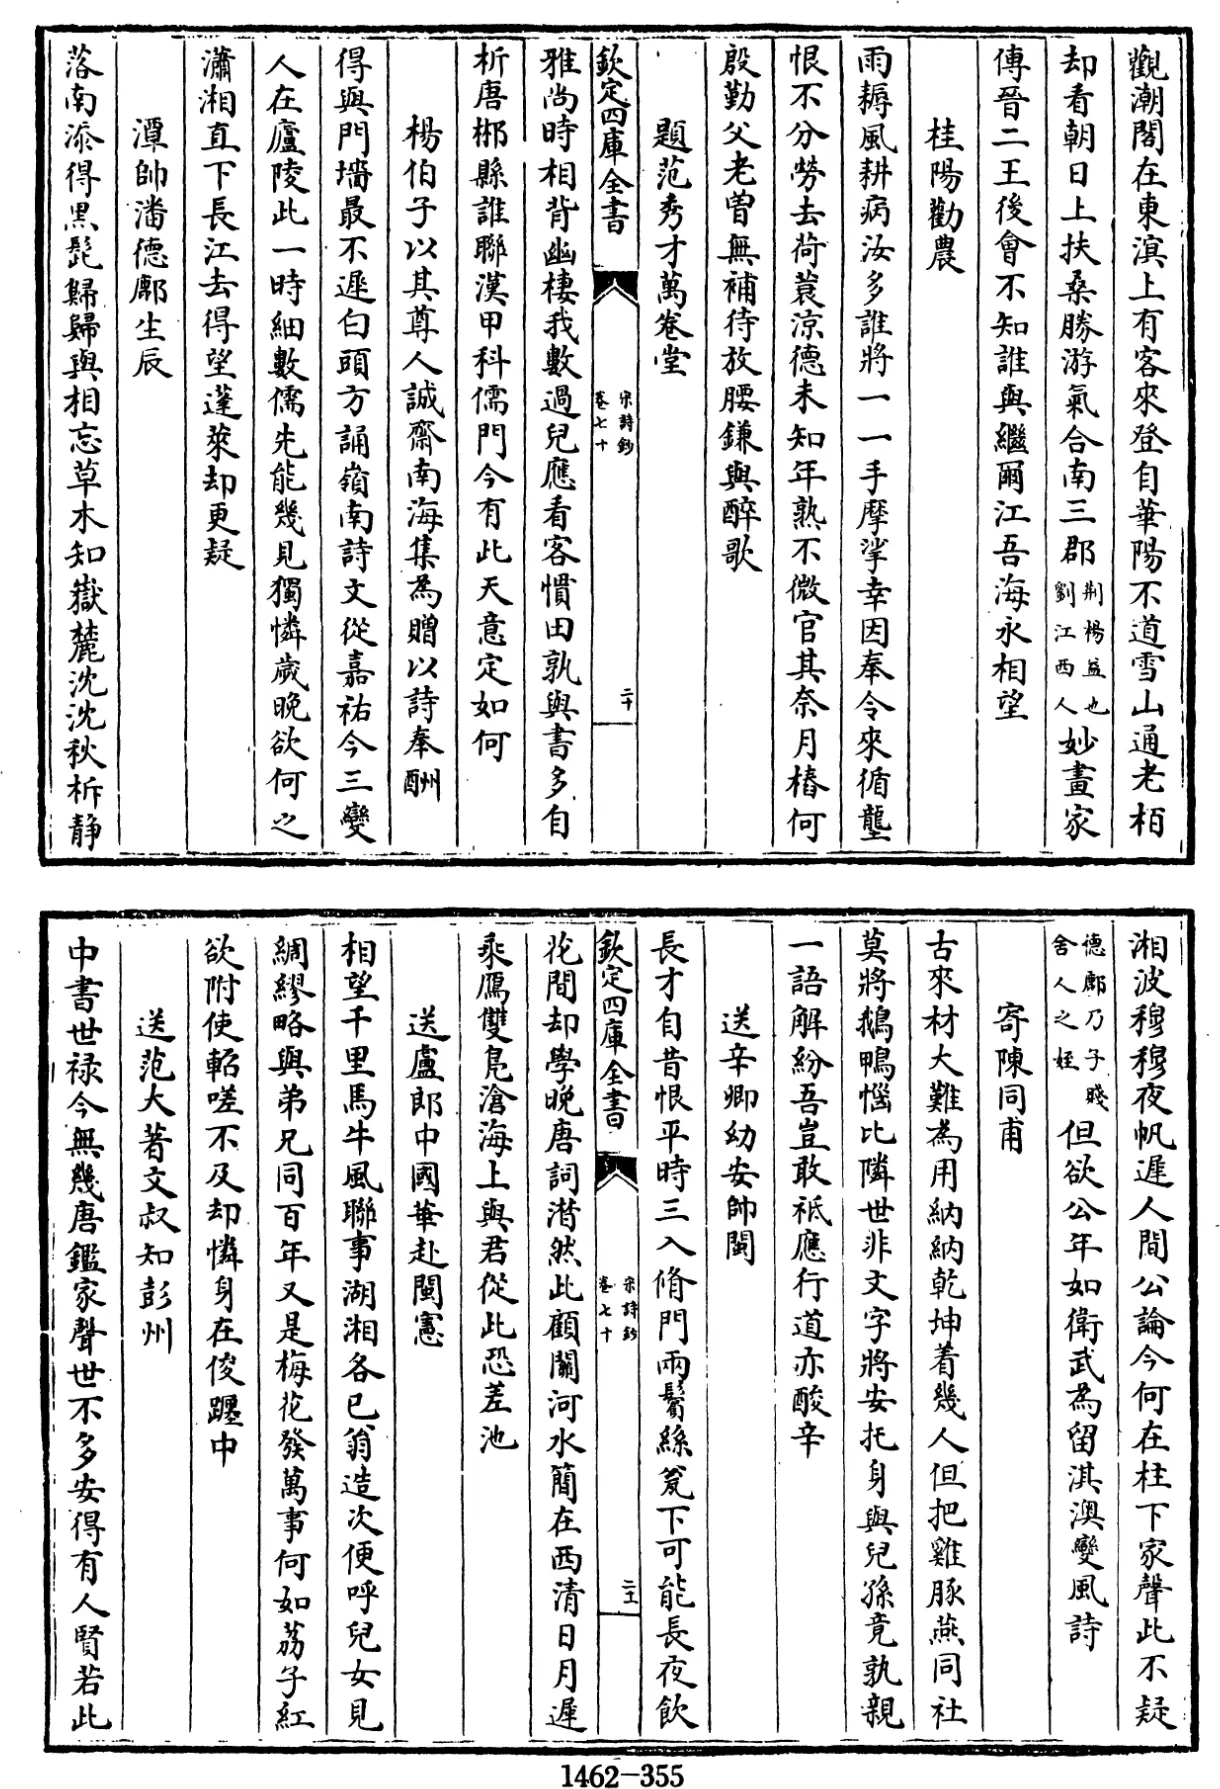 觀潮閣在東溟上有客來登自華陽不道雪山通老栢
却看朝日上扶桑勝游氣合南三郡荆楊益也劉江西人妙畫家
傳晉二王後會不知誰與繼爾江吾海永相望
桂陽勸農
雨耨風耕病汝多誰將一一手摩挲幸因奉令來循壟
恨不分勞去荷蓑凉德未知年熟不微官其奈月樁何
殷勤父老曽無補待放腰鎌與醉歌
題范秀才萬卷堂
欽定四庫全書
宋詩鈔
卷七十
二十
雅尚時相背幽棲我數過兒應看客慣田孰與書多自
析唐郴縣誰聯漢甲科儒門今有此天意定如何
楊伯子以其尊人誠齋南海集為贈以詩奉酬
得與門墻最不遲白頭方誦嶺南詩文從嘉祐今三變
人在廬陵此一時細數儒先能幾見獨憐歲晚欲何之
瀟湘直下長江去得望蓬萊却更疑
潭帥潘德鄜生辰
落南添得黒髭歸歸與相忘草木知嶽麓沈沈秋柝静
湘波穆穆夜帆遲人間公論今何在柱下家聲此不疑
德鄜乃子賤舍人之姪但欲公年如衛武為留淇澳變風詩
寄陳同甫
古來材大難為用納納乾坤着幾人但把雞豚燕同社
莫將鵝鴨惱比隣世非文字將安托身與兒孫竟孰親
一語解紛吾豈敢祗應行道亦酸辛
送辛卿幼安帥閩
長才自昔恨平時三入脩門兩鬢絲瓮下可能長夜飲
欽定四庫全書
宋詩鈔
卷七十
二十一
花間却學晚唐詞潸然此顧關河水簡在西清日月遲
乘鴈雙鳬滄海上與君從此恐差池
送盧郎中國華赴閩憲
相望千里馬牛風聯事湖湘各已翁造次便呼兒女見
綢繆略與弟兄同百年又是梅花發萬事何如荔子紅
欲附使軺嗟不及却憐身在俊躔中
送范大著文叔知彭州
中書世禄今無幾唐鑑家聲世不多安得有人賢若此
1462-355